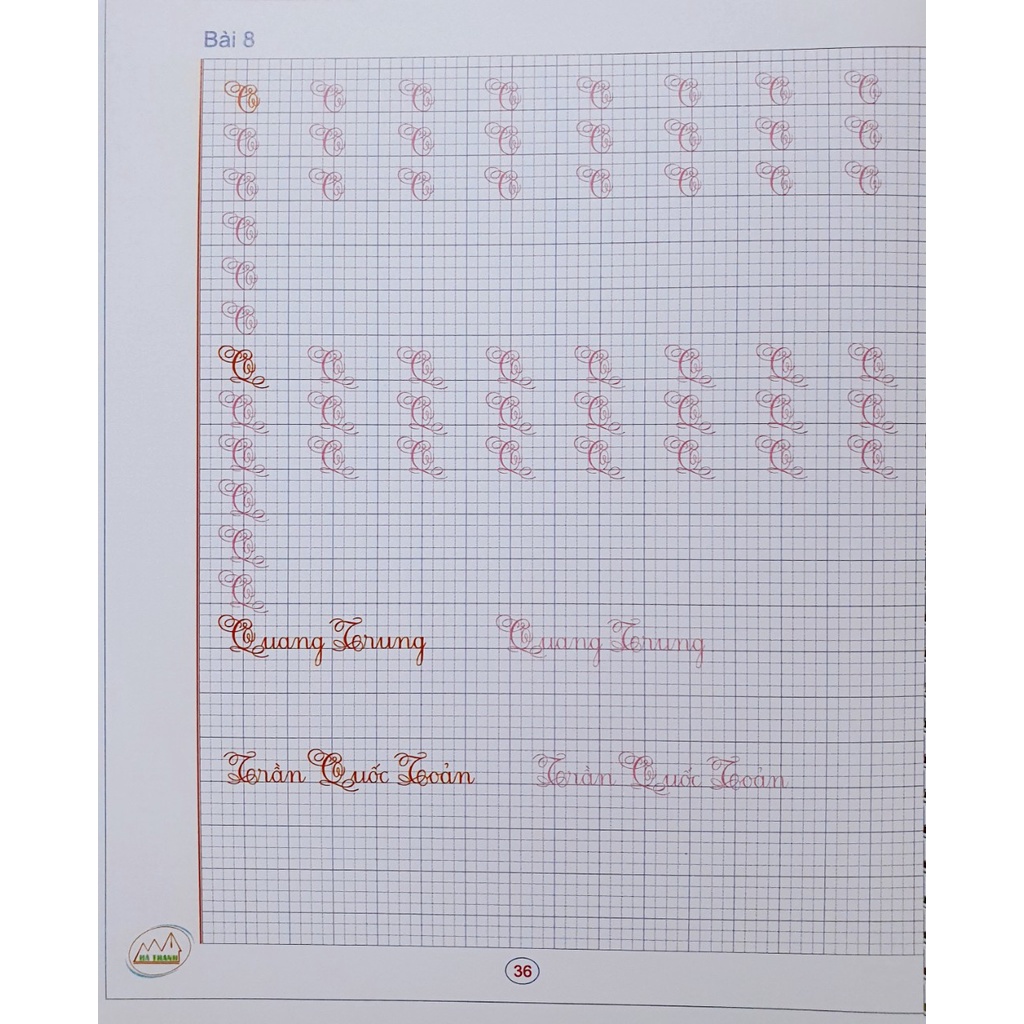 Bài 8
O O O O O O O O
O O O O O O O O
O O O O O O O O
O
O
O
Q Q Q Q Q Q Q Q
Q Q Q Q Q Q Q Q
Q Q Q Q Q Q Q Q
Q
Q
Q
Quang Trung Quang Trung
Trần Quốc Toản Trần Quốc Toản
HÀ THÀNH
36